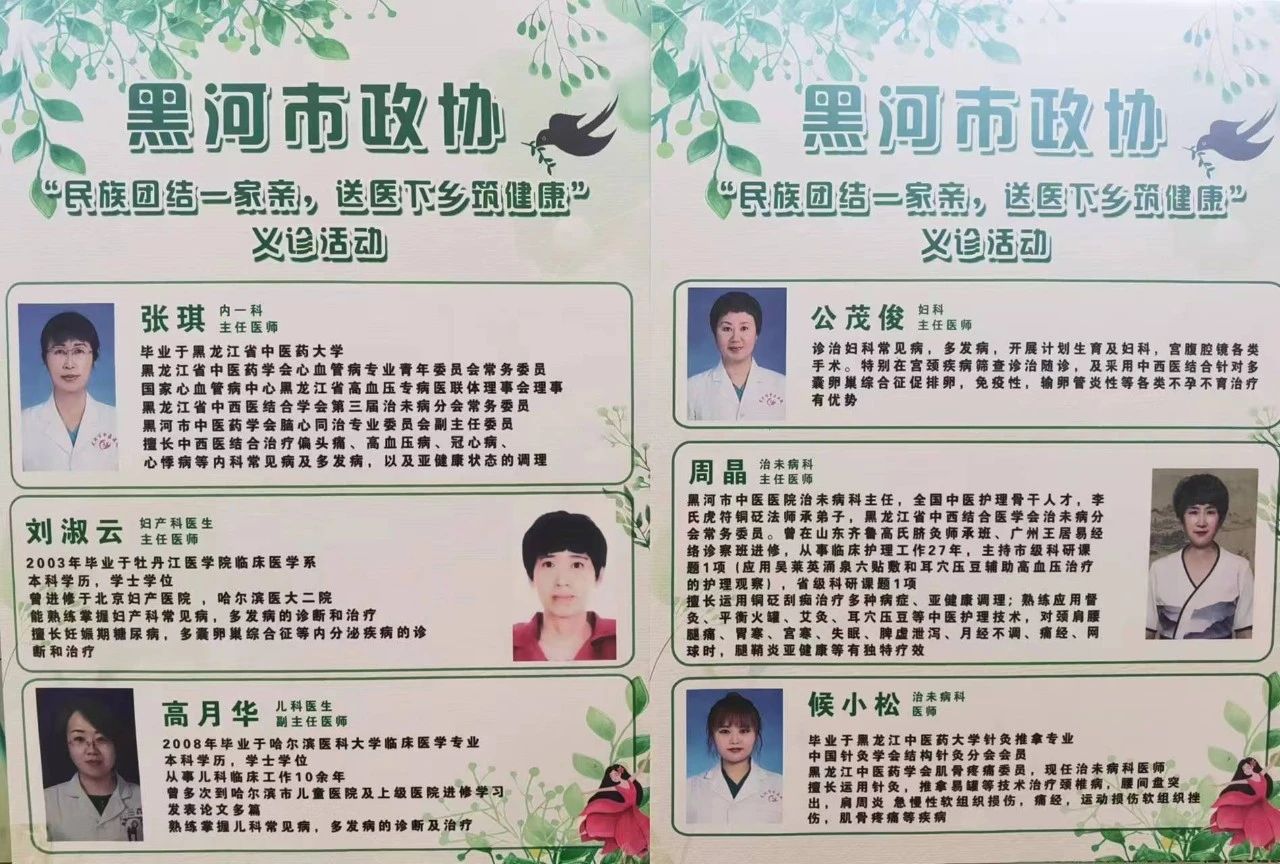 黑河市政协
“民族团结一家亲，送医下乡筑健康”
义诊活动
张琪 内一科
主任医师
毕业于黑龙江省中医药大学
黑龙江省中医药学会心血管病专业青年委员会常务委员
国家心血管病中心黑龙江省高血压专病医联体理事会理事
黑龙江省中西医结合学会第三届治未病分会常务委员
黑河市中医药学会脑心同治专业委员会副主任委员
擅长中西医结合治疗偏头痛、高血压病、冠心病、
心悸病等内科常见病及多发病，以及亚健康状态的调理
刘淑云 妇产科医生
主任医师
2003年毕业于牡丹江医学院临床医学系
本科学历，学士学位
曾进修于北京妇产医院 ，哈尔滨医大二院
能熟练掌握妇产科常见病，多发病的诊断和治疗
擅长妊娠期糖尿病，多囊卵巢综合征等内分泌疾病的诊
断和治疗
高月华 儿科医生
副主任医师
2008年毕业于哈尔滨医科大学临床医学专业
本科学历，学士学位
从事儿科临床工作10余年
曾多次到哈尔滨市儿童医院及上级医院进修学习
发表论文多篇
熟练掌握儿科常见病，多发病的诊断及治疗
黑河市政协
“民族团结一家亲，送医下乡筑健康”
义诊活动
公茂俊 妇科
主任医师
诊治妇科常见病，多发病，开展计划生育及妇科，宫腹腔镜各类
手术。特别在宫颈疾病筛查诊治随诊，及采用中西医结合针对多
囊卵巢综合征促排卵，免疫性，输卵管炎性等各类不孕不育治疗
有优势
周晶 治未病科
主任医师
黑河市中医医院治未病科主任，全国中医护理骨干人才，李
氏虎符铜砭法师承弟子，黑龙江省中西结合医学会治未病分
会常务委员。曾在山东齐鲁高氏脐灸师承班、广州王居易经
络诊察班进修，从事临床护理工作27年，主持市级科研课
题1项（应用吴莱英涌泉六贴敷和耳穴压豆辅助高血压治疗
的护理观察），省级科研课题1项
擅长运用铜砭刮痧治疗多种病症、亚健康调理；熟练应用督
灸、平衡火罐、艾灸、耳穴压豆等中医护理技术，对颈肩腰
腿痛、胃寒、宫寒、失眠、脾虚泄泻、月经不调、痛经、网
球肘，腱鞘炎亚健康等有独特疗效
候小松 治未病科
医师
毕业于黑龙江中医药大学针灸推拿专业
中国针灸学会结构针灸分会会员
黑龙江中医药学会肌骨疼痛委员，现任治未病科医师
擅长运用针灸，推拿易罐等技术治疗颈椎病，腰间盘突
出，肩周炎 急慢性软组织损伤，痛经，运动损伤软组织挫
伤，肌骨疼痛等疾病